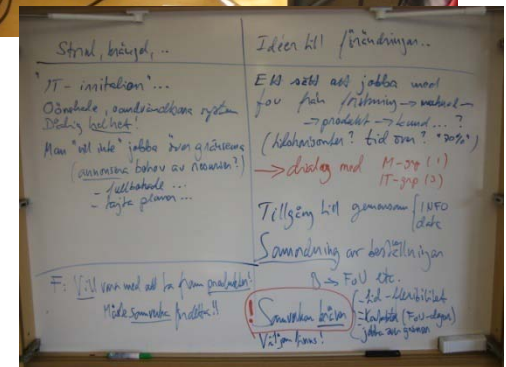 Strul, krångel, ..
"IT-irritation"...
Oönskade, oanvändbara system
Dålig helhet!
Man "vill inte" jobba över gränserna
(annonsera behov av resurser?)
- fullbokade ...
- tajta planer ...
F: Vill vara med att ta fram produkten!
Måste samverka
Idéer till förändringar...
Ett sätt att jobba med
FoU från forskning → material →
→ produkt → kund ... ?
(tidshorisonter? tid över? "20%")
→ dialog med M-grp (1)
IT-grp (2)
Tillgång till gemensam { INFO
data
Samordning av beställningar
→ FoU etc.
! Samverkan kräver
Viljan finns!
- tid - flexibilitet
- (FoU-dagar)
jobba över gränser